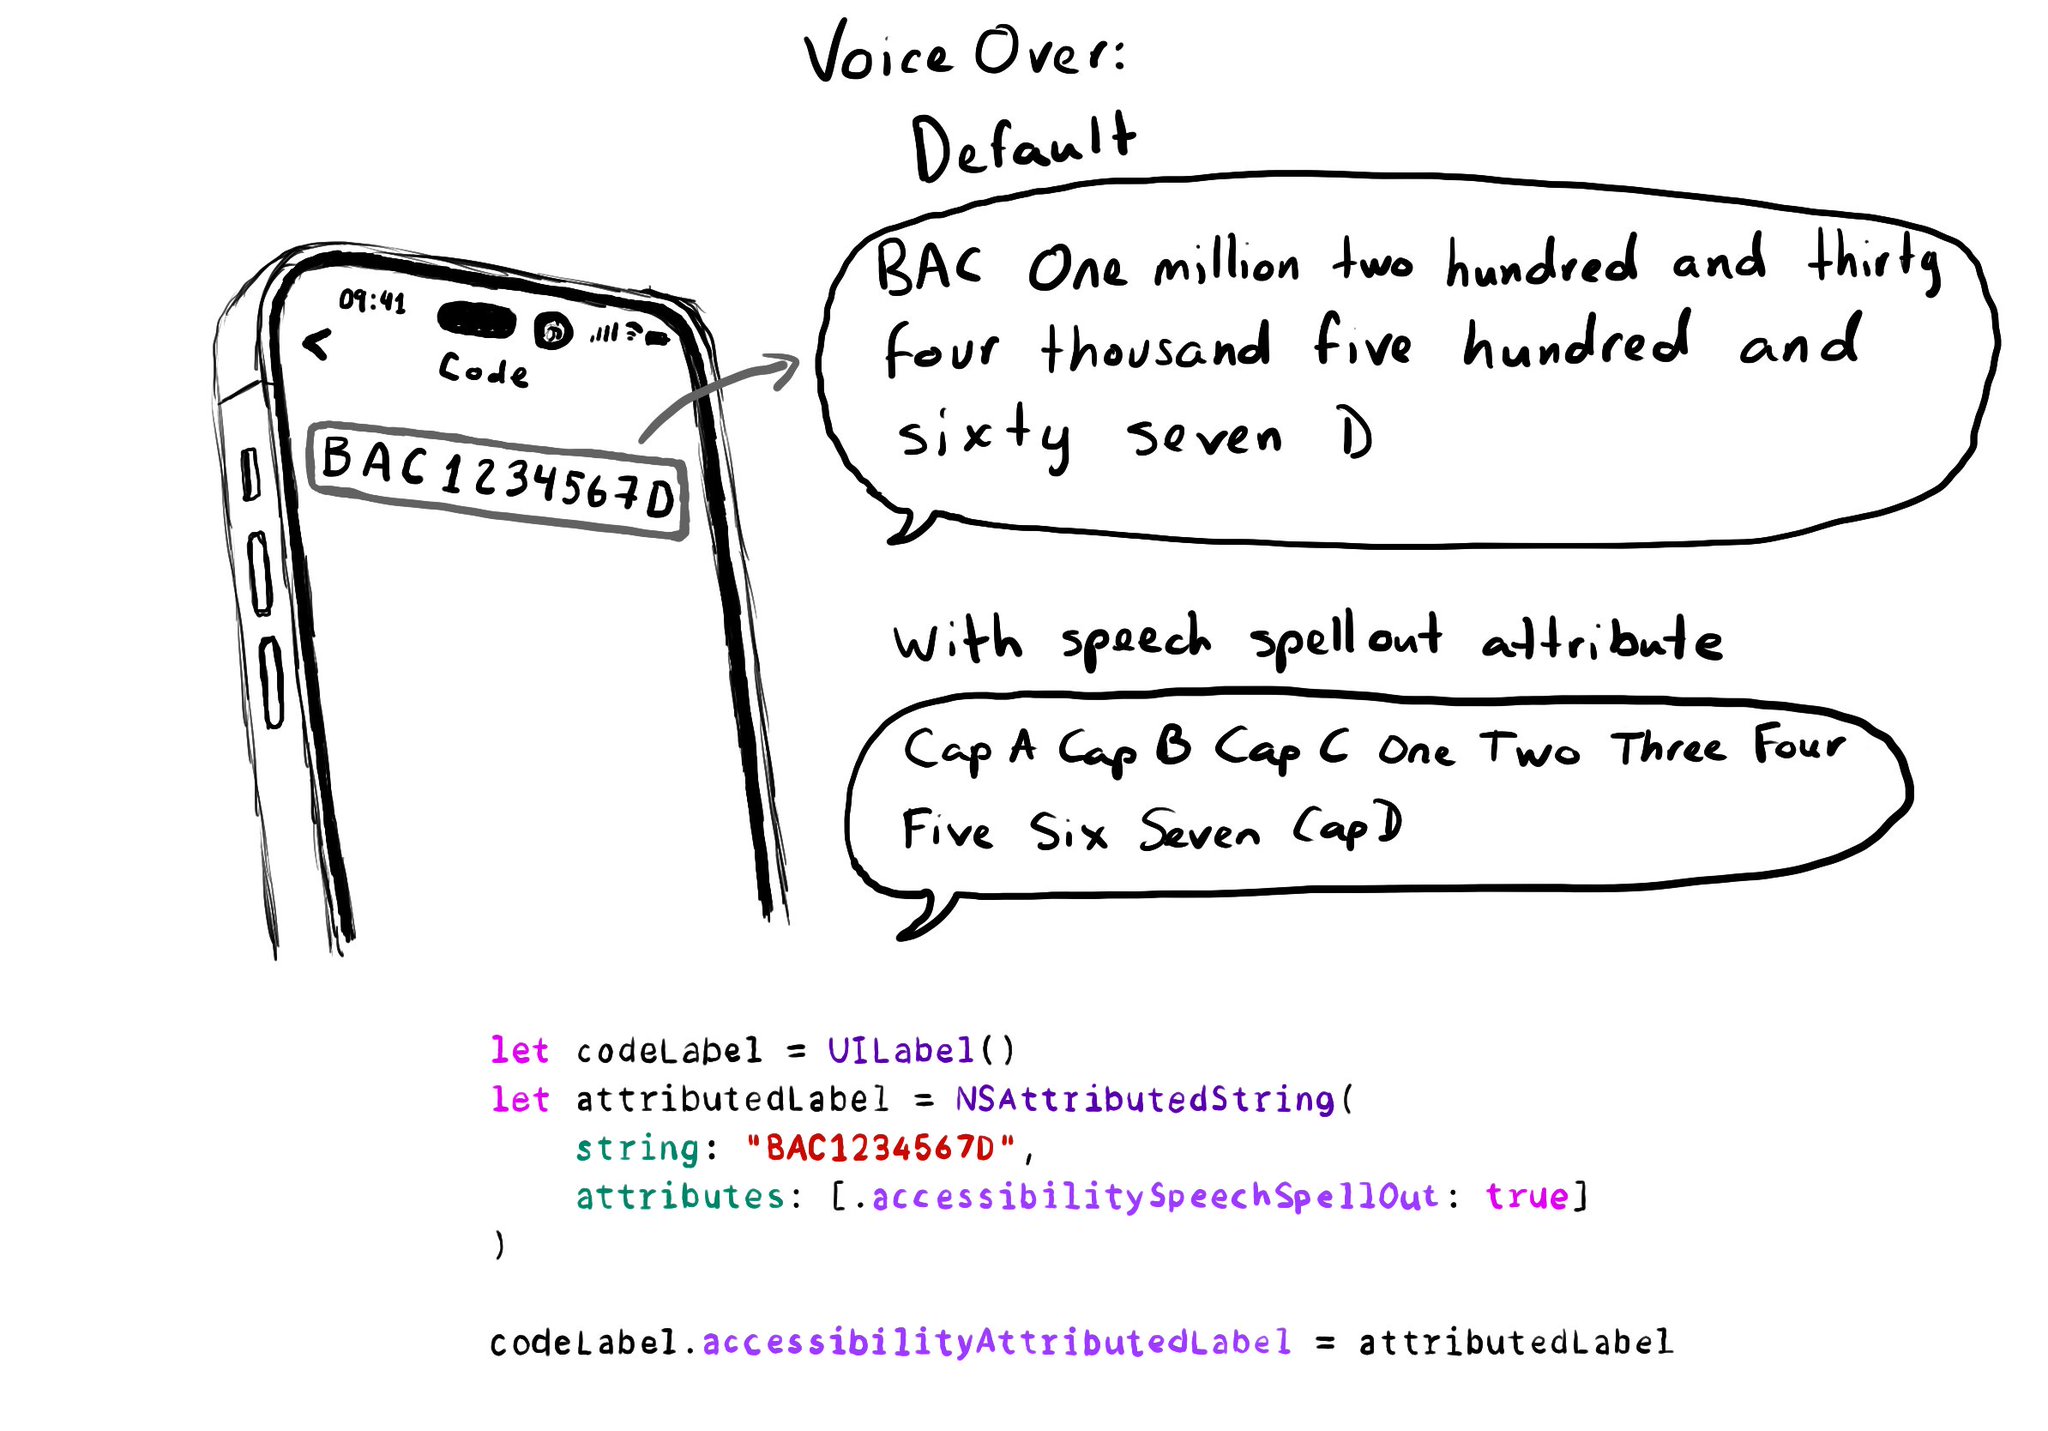 Voice Over:
Default
BAC One million two hundred and thirty
four thousand five hundred and
sixty seven D
09:41
<
Code
BAC1234567D
with speech spell out attribute
Cap A Cap B Cap C One Two Three Four
Five Six Seven Cap D
let codeLabel = UILabel()
let attributedLabel = NSAttributedString(
string: "BAC1234567D",
attributes: [.accessibilitySpeechSpellOut: true]
)
codeLabel.accessibilityAttributedLabel = attributedLabel